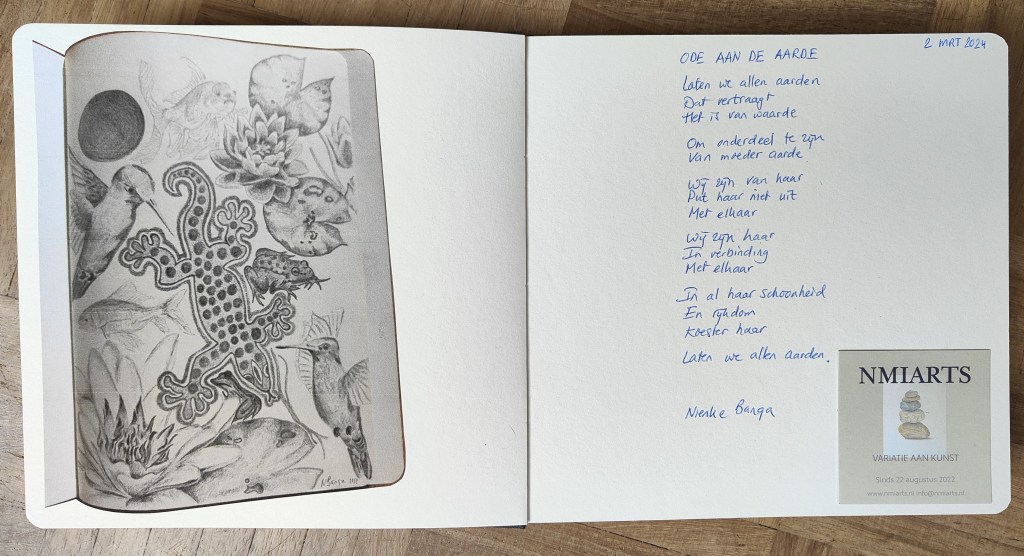 2 MRT 2024
ODE AAN DE AARDE
Laten we allen aarden
Dat vertraagt
Het is van waarde
Om onderdeel te zijn
Van moeder aarde
Wij zijn van haar
Put haar niet uit
Met elkaar
Wij zijn haar
In verbinding
Met elkaar
In al haar schoonheid
En rijkdom
Koester haar
Laten we allen aarden.
Nienke Banga
NMIARTS
VARIATIE AAN KUNST
Sinds 22 augustus 2022
www.nmiarts.nl info@nmiarts.nl
N Banga